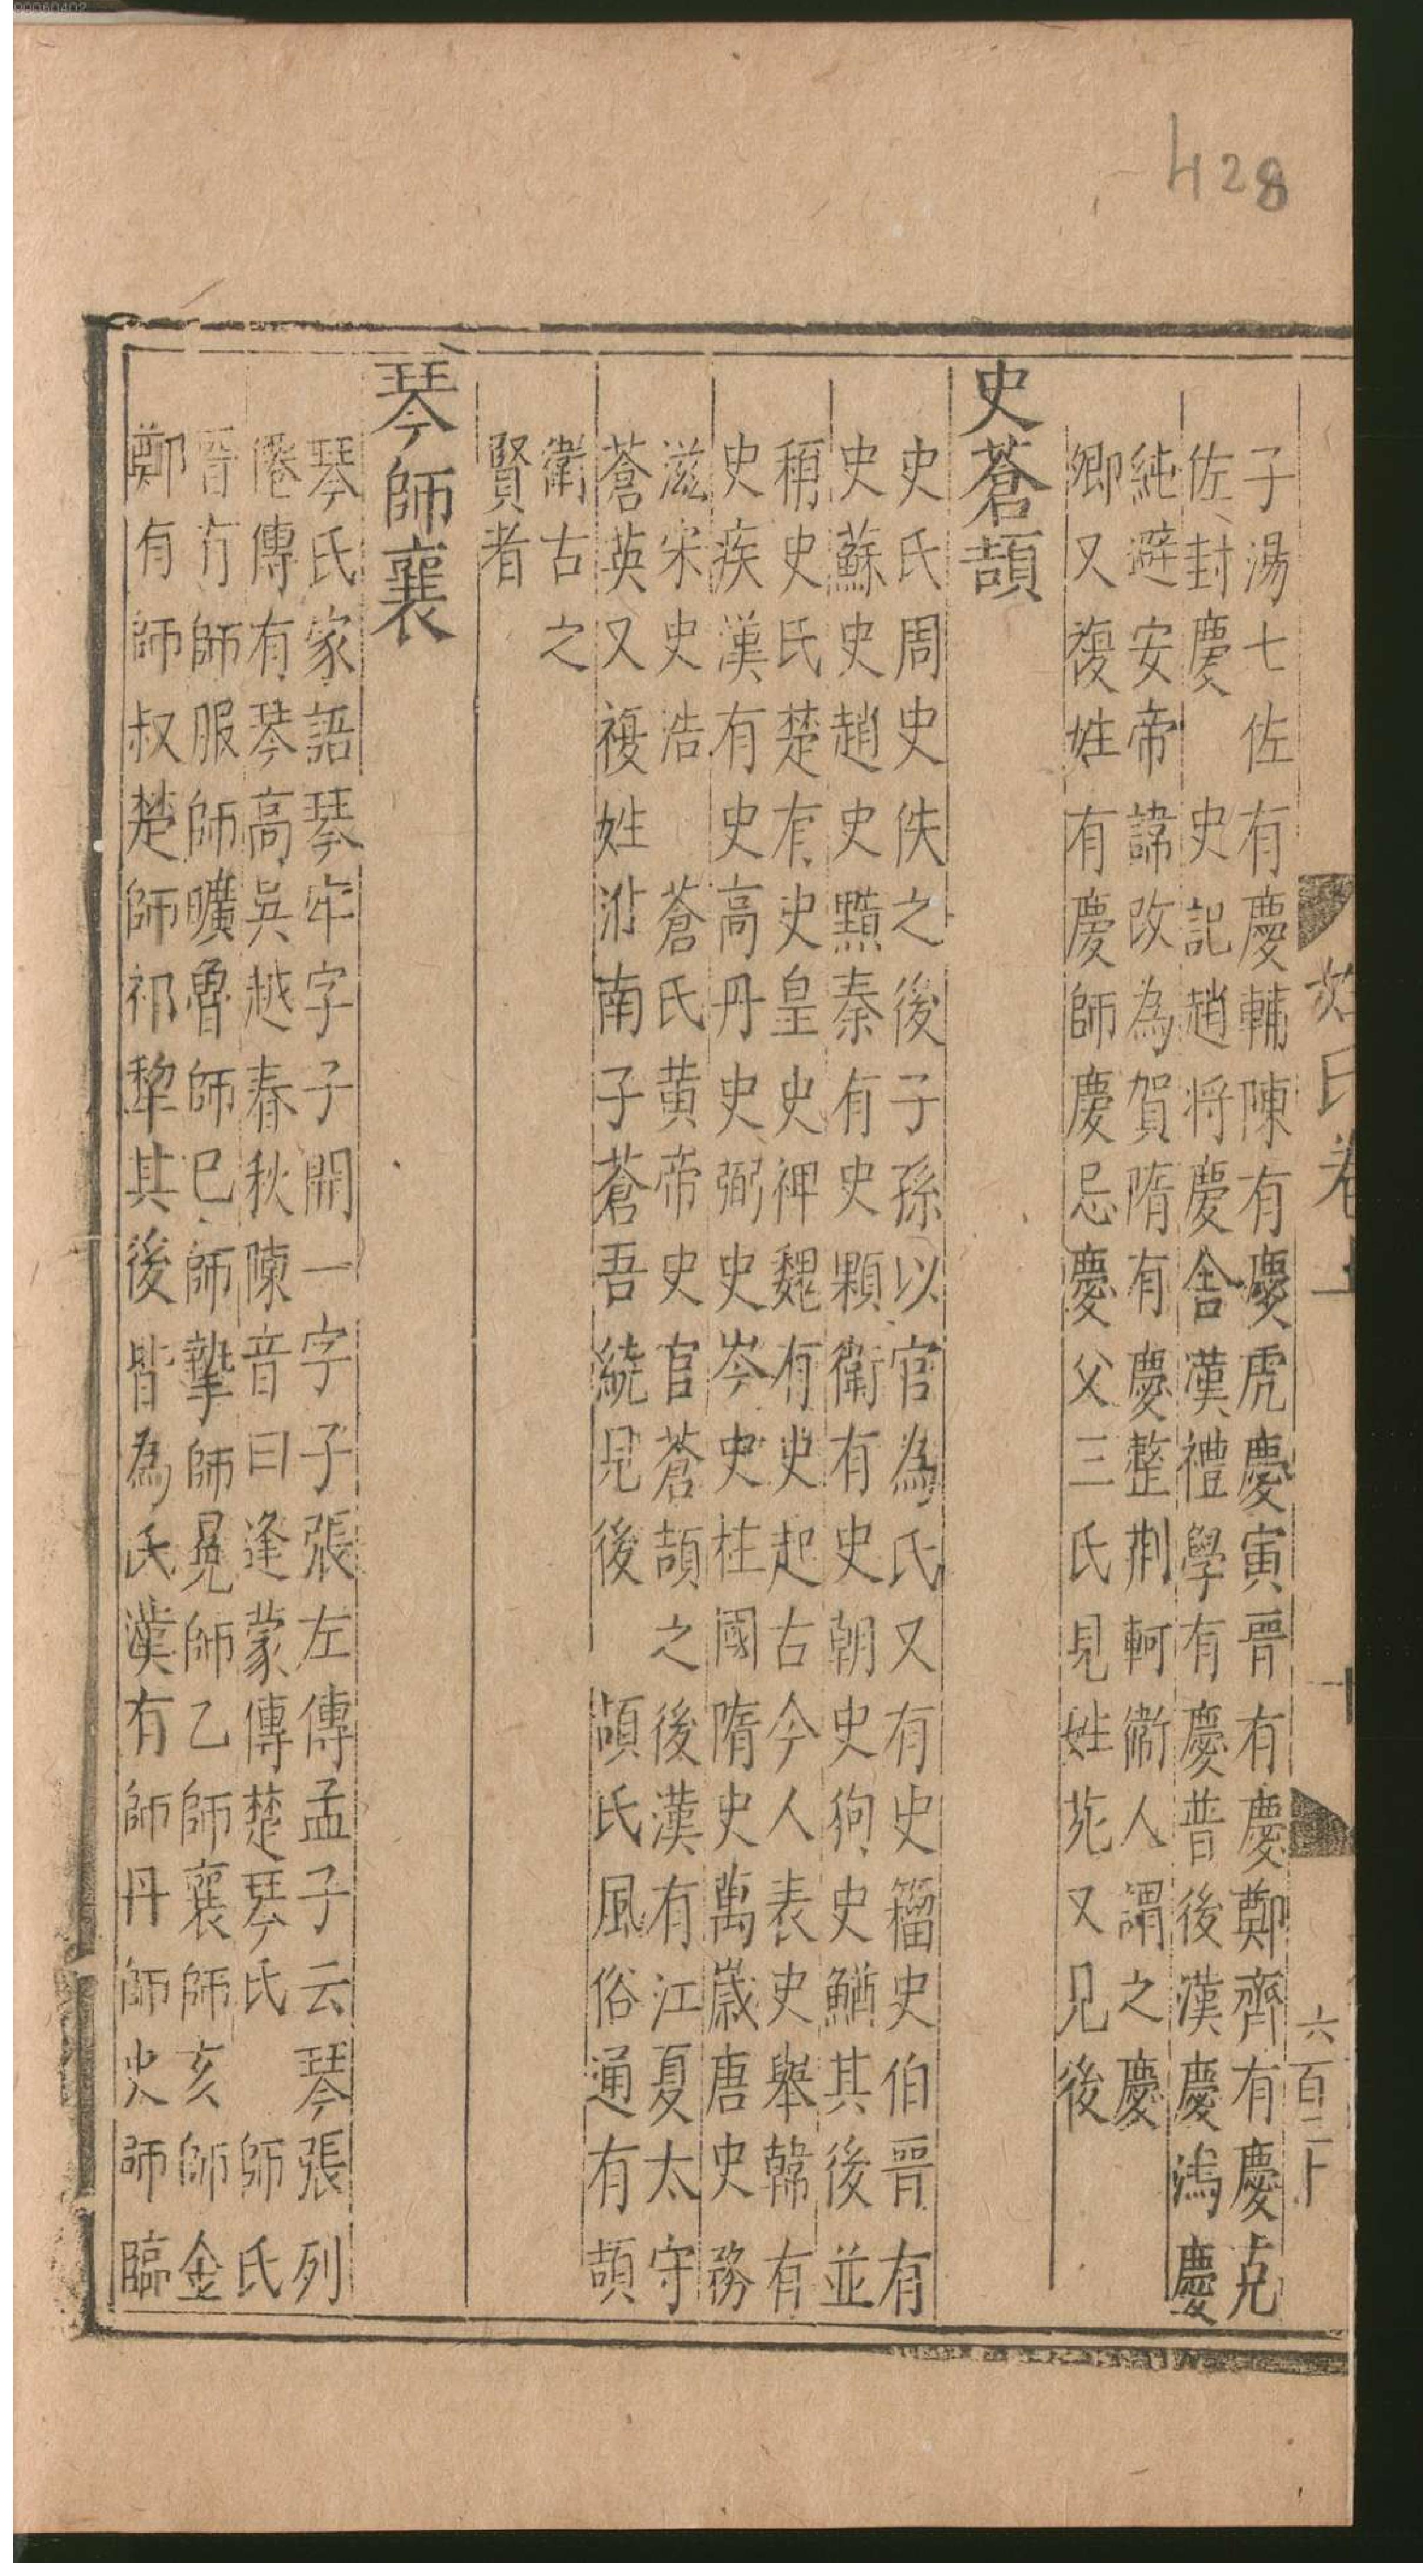 428
子湯七佐有慶輔陳有慶虎慶寅晉有慶鄭齊有慶克
佐封慶　史記趙將慶舍漢禮學有慶普後漢慶鴻慶
純避安帝諱改為賀隋有慶整荆軻衞人謂之慶
卿又複姓有慶師慶忌慶父三氏見姓苑又見後
史蒼頡
史氏周史佚之後子孫以官為氏又有史籀史伯晉有
史蘇史趙史黯秦有史顆衛有史朝史狗史鰌其後並
稱史氏楚有史皇史裨魏有史起古今人表史舉韓有
史疾漢有史高丹史弼史岑史柱國隋史萬歲唐史務
滋宋史浩　蒼氏黃帝史官蒼頡之後漢有江夏太守
蒼英又複姓淅南子蒼吾繞見後　頡氏風俗通有頡
衛古之
賢者
琴師襄
琴氏家語琴牢字子開一字子張左傳孟子云琴張列
僊傳有琴高吳越春秋陳音曰逢蒙傳楚琴氏　師氏
晉有師服師曠魯師巳師摯師冕師乙師襄師亥師金
鄭有師叔楚師祁犂其後皆為氏漢有師丹師史師臨
氏卷上
十
六百二十
00060402